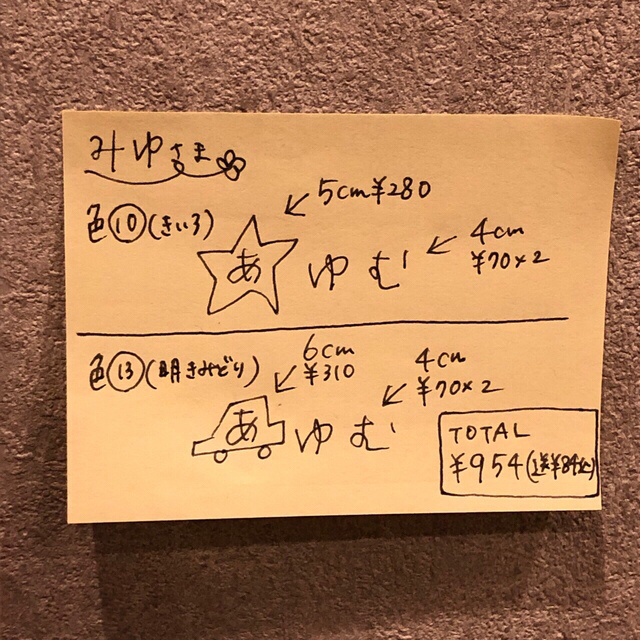 みゆさま
5cm¥280
色⑩(きいろ)
あ ゆ む
4cm
¥70×2
色⑬(明きみどり)
6cm
¥310
4cm
¥70×2
あ ゆ む
TOTAL
¥954(送¥84込)